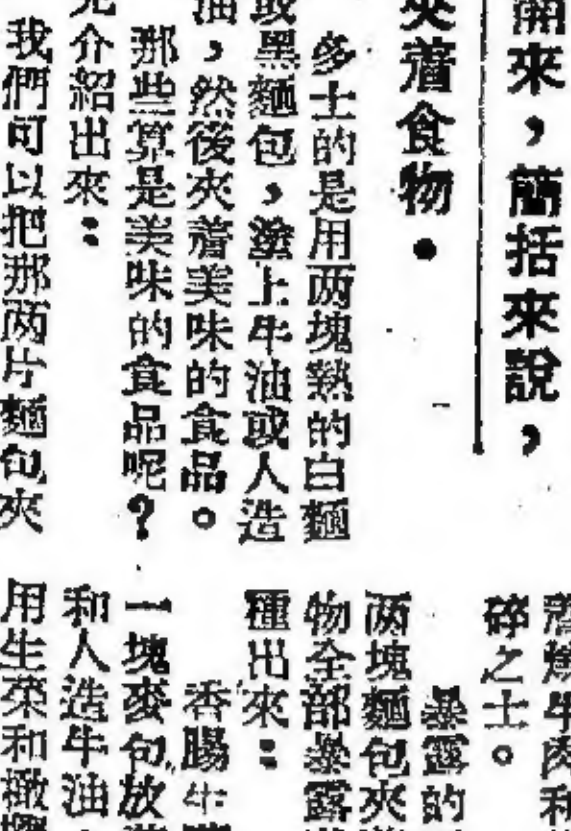 開來，簡括來說，
夾着食物．
多士的是用两塊熱的白麵
或黑麵包，塗上牛油或人造
油，然後夾着美味的食品。
那些算是美味的食品呢？
介紹出來：
我們可以把那两片麵包夾
牛肉和
碎之士。
暴露的
两塊麵包夾
物全部暴露
種出來：
香腸牛
一塊麥包放
和人造牛油
用生菜和橄